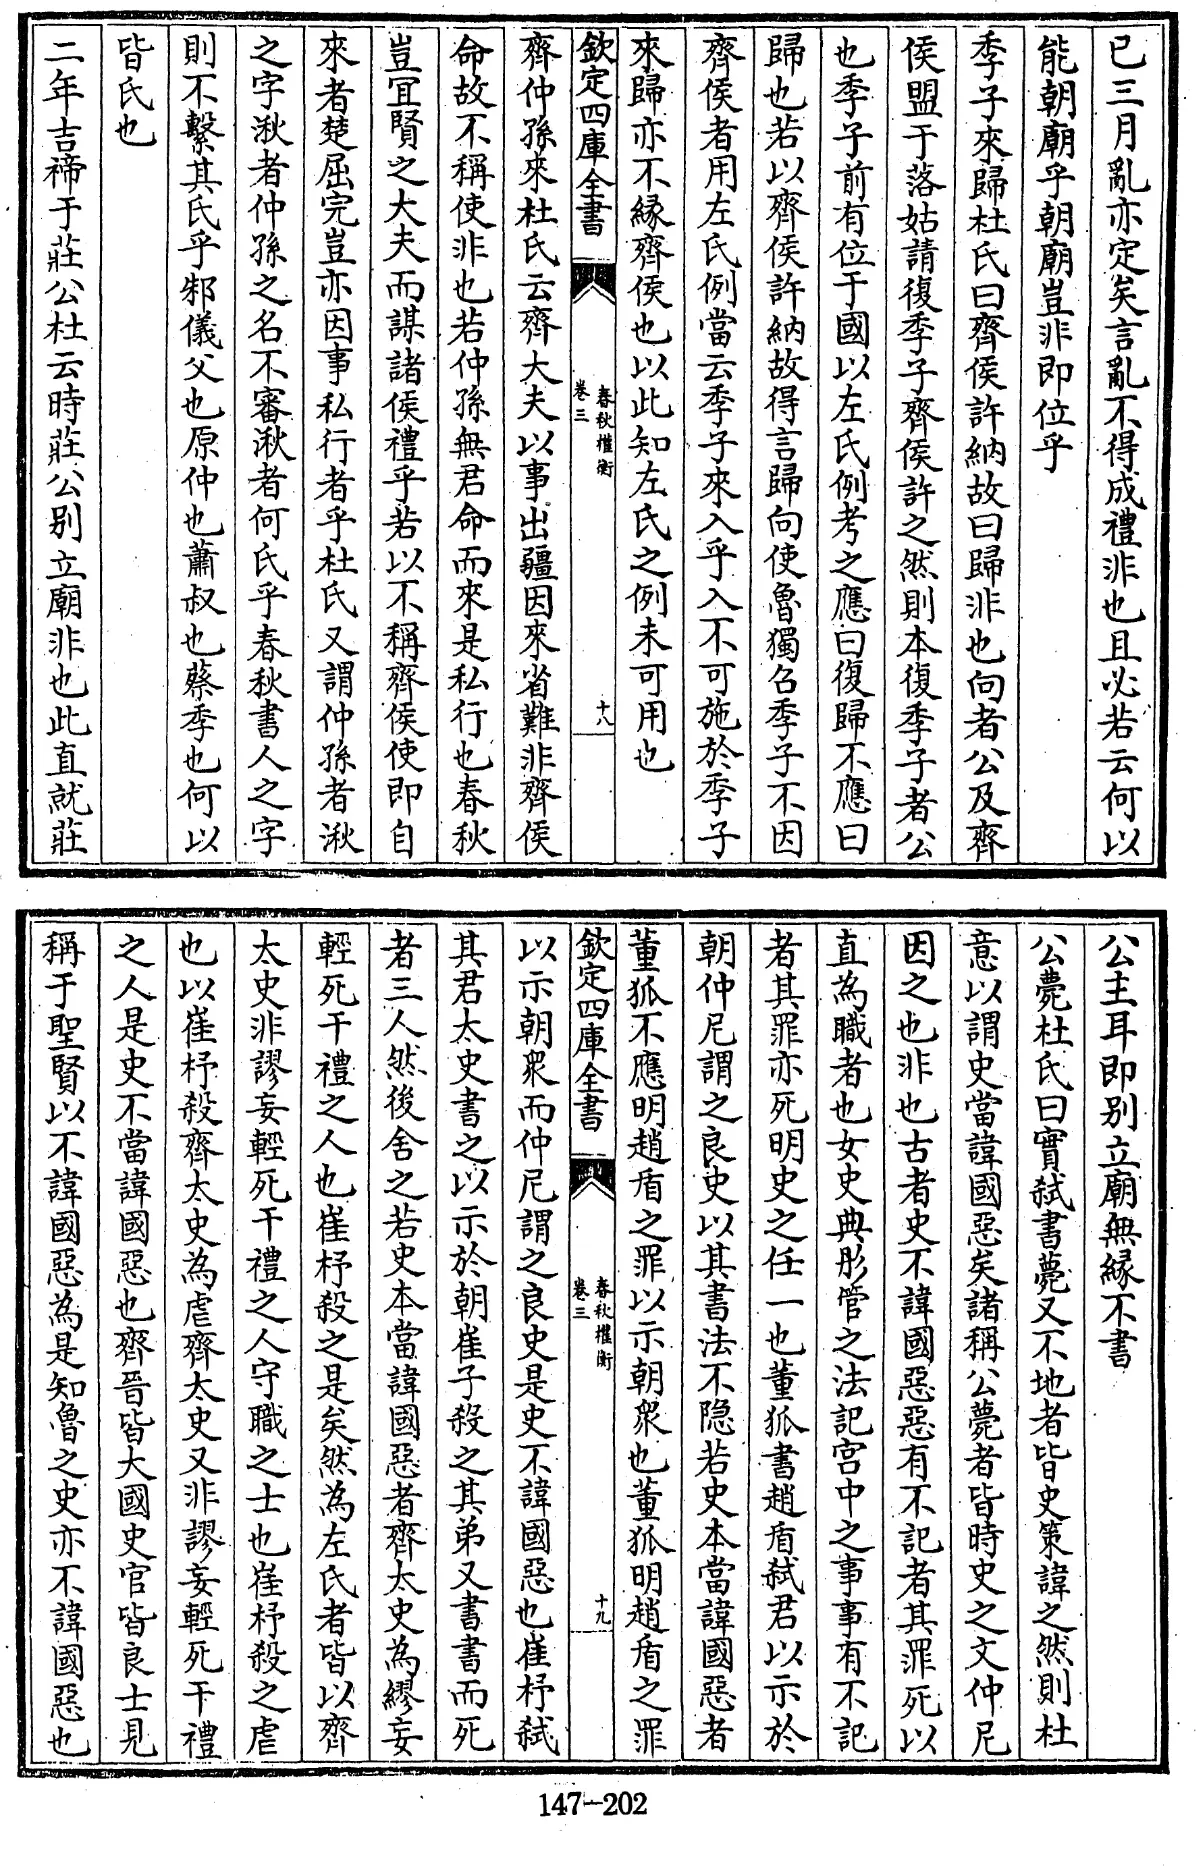 已三月亂亦定矣言亂不得成禮非也且必若云何以
能朝廟乎朝廟豈非即位乎
季子來歸杜氏曰齊侯許納故曰歸非也向者公及齊
侯盟于落姑請復季子齊侯許之然則本復季子者公
也季子前有位于國以左氏例考之應曰復歸不應曰
歸也若以齊侯許納故得言歸向使魯獨召季子不因
齊侯者用左氏例當云季子來入乎入不可施於季子
來歸亦不緣齊侯也以此知左氏之例未可用也
欽定四庫全書
春秋權衡
卷三
十八
齊仲孫來杜氏云齊大夫以事出疆因來省難非齊侯
命故不稱使非也若仲孫無君命而來是私行也春秋
豈宜賢之大夫而謀諸侯禮乎若以不稱齊侯使即自
來者楚屈完豈亦因事私行者乎杜氏又謂仲孫者湫
之字湫者仲孫之名不審湫者何氏乎春秋書人之字
則不繫其氏乎邾儀父也原仲也蕭叔也蔡季也何以
皆氏也
二年吉禘于莊公杜云時莊公别立廟非也此直就莊
公主耳即别立廟無緣不書
公薨杜氏曰實弑書薨又不地者皆史策諱之然則杜
意以謂史當諱國惡矣諸稱公薨者皆時史之文仲尼
因之也非也古者史不諱國惡惡有不記者其罪死以
直為職者也女史典彤管之法記宫中之事事有不記
者其罪亦死明史之任一也董狐書趙盾弑君以示於
朝仲尼謂之良史以其書法不隐若史本當諱國惡者
董狐不應明趙盾之罪以示朝衆也董狐明趙盾之罪
欽定四庫全書
春秋權衡
卷三
十九
以示朝衆而仲尼謂之良史是史不諱國惡也崔杼弑
其君太史書之以示於朝崔子殺之其弟又書書而死
者三人然後舍之若史本當諱國惡者齊太史為繆妄
輕死干禮之人也崔杼殺之是矣然為左氏者皆以齊
太史非謬妄輕死干禮之人守職之士也崔杼殺之虐
也以崔杼殺齊太史為虐齊太史又非謬妄輕死干禮
之人是史不當諱國惡也齊晉皆大國史官皆良士見
稱于聖賢以不諱國惡為是知魯之史亦不諱國惡也
147-202